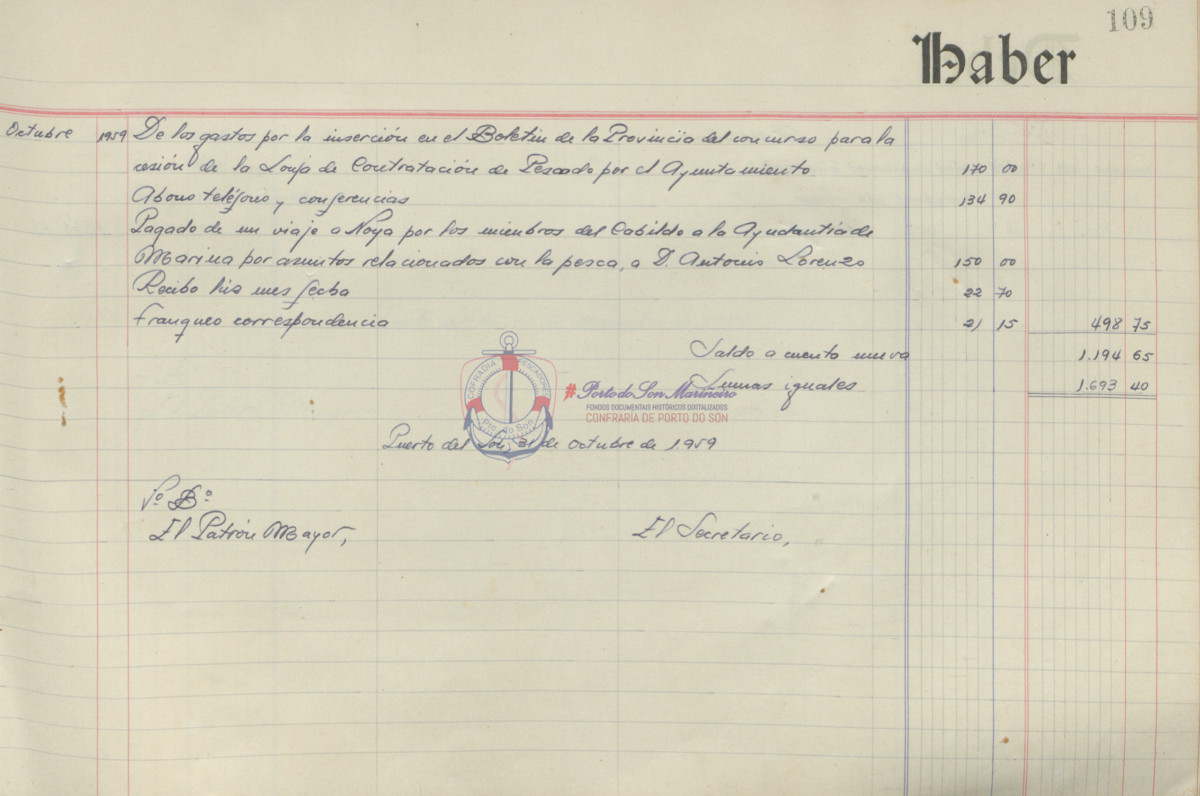 109
Haber
Octubre 1959 De los gastos por la inserción en el Boletin de la Provinciia del concurso para la
cesión de la Lonja de Contratación de Pescado por el Ayuntamiento 170 00
Abono teléfono y conferencias 134 90
Pagado de un viaje a Noya por los miembros del Cabildo a la Ayudantia de
Marina por asuntos relacionados con la pesca, a D. Antonio Lorenzo 150 00
Recibo luz mes fecha 22 70
Franqueo correspondencia 21 15 498 75
Saldo a cuenta nueva 1.194 65
Sumas iguales 1.693 40
COFRADIA PESCADORES
Pto. do Son
#Porto do Son Mariñeiro
FONDOS DOCUMENTAIS HISTÓRICOS DIXITALIZADOS
CONFRARÍA DE PORTO DO SON
Puerto del Son, 31 de Octubre de 1.959
Vº Bº
El Patrón Mayor, El Secretario,